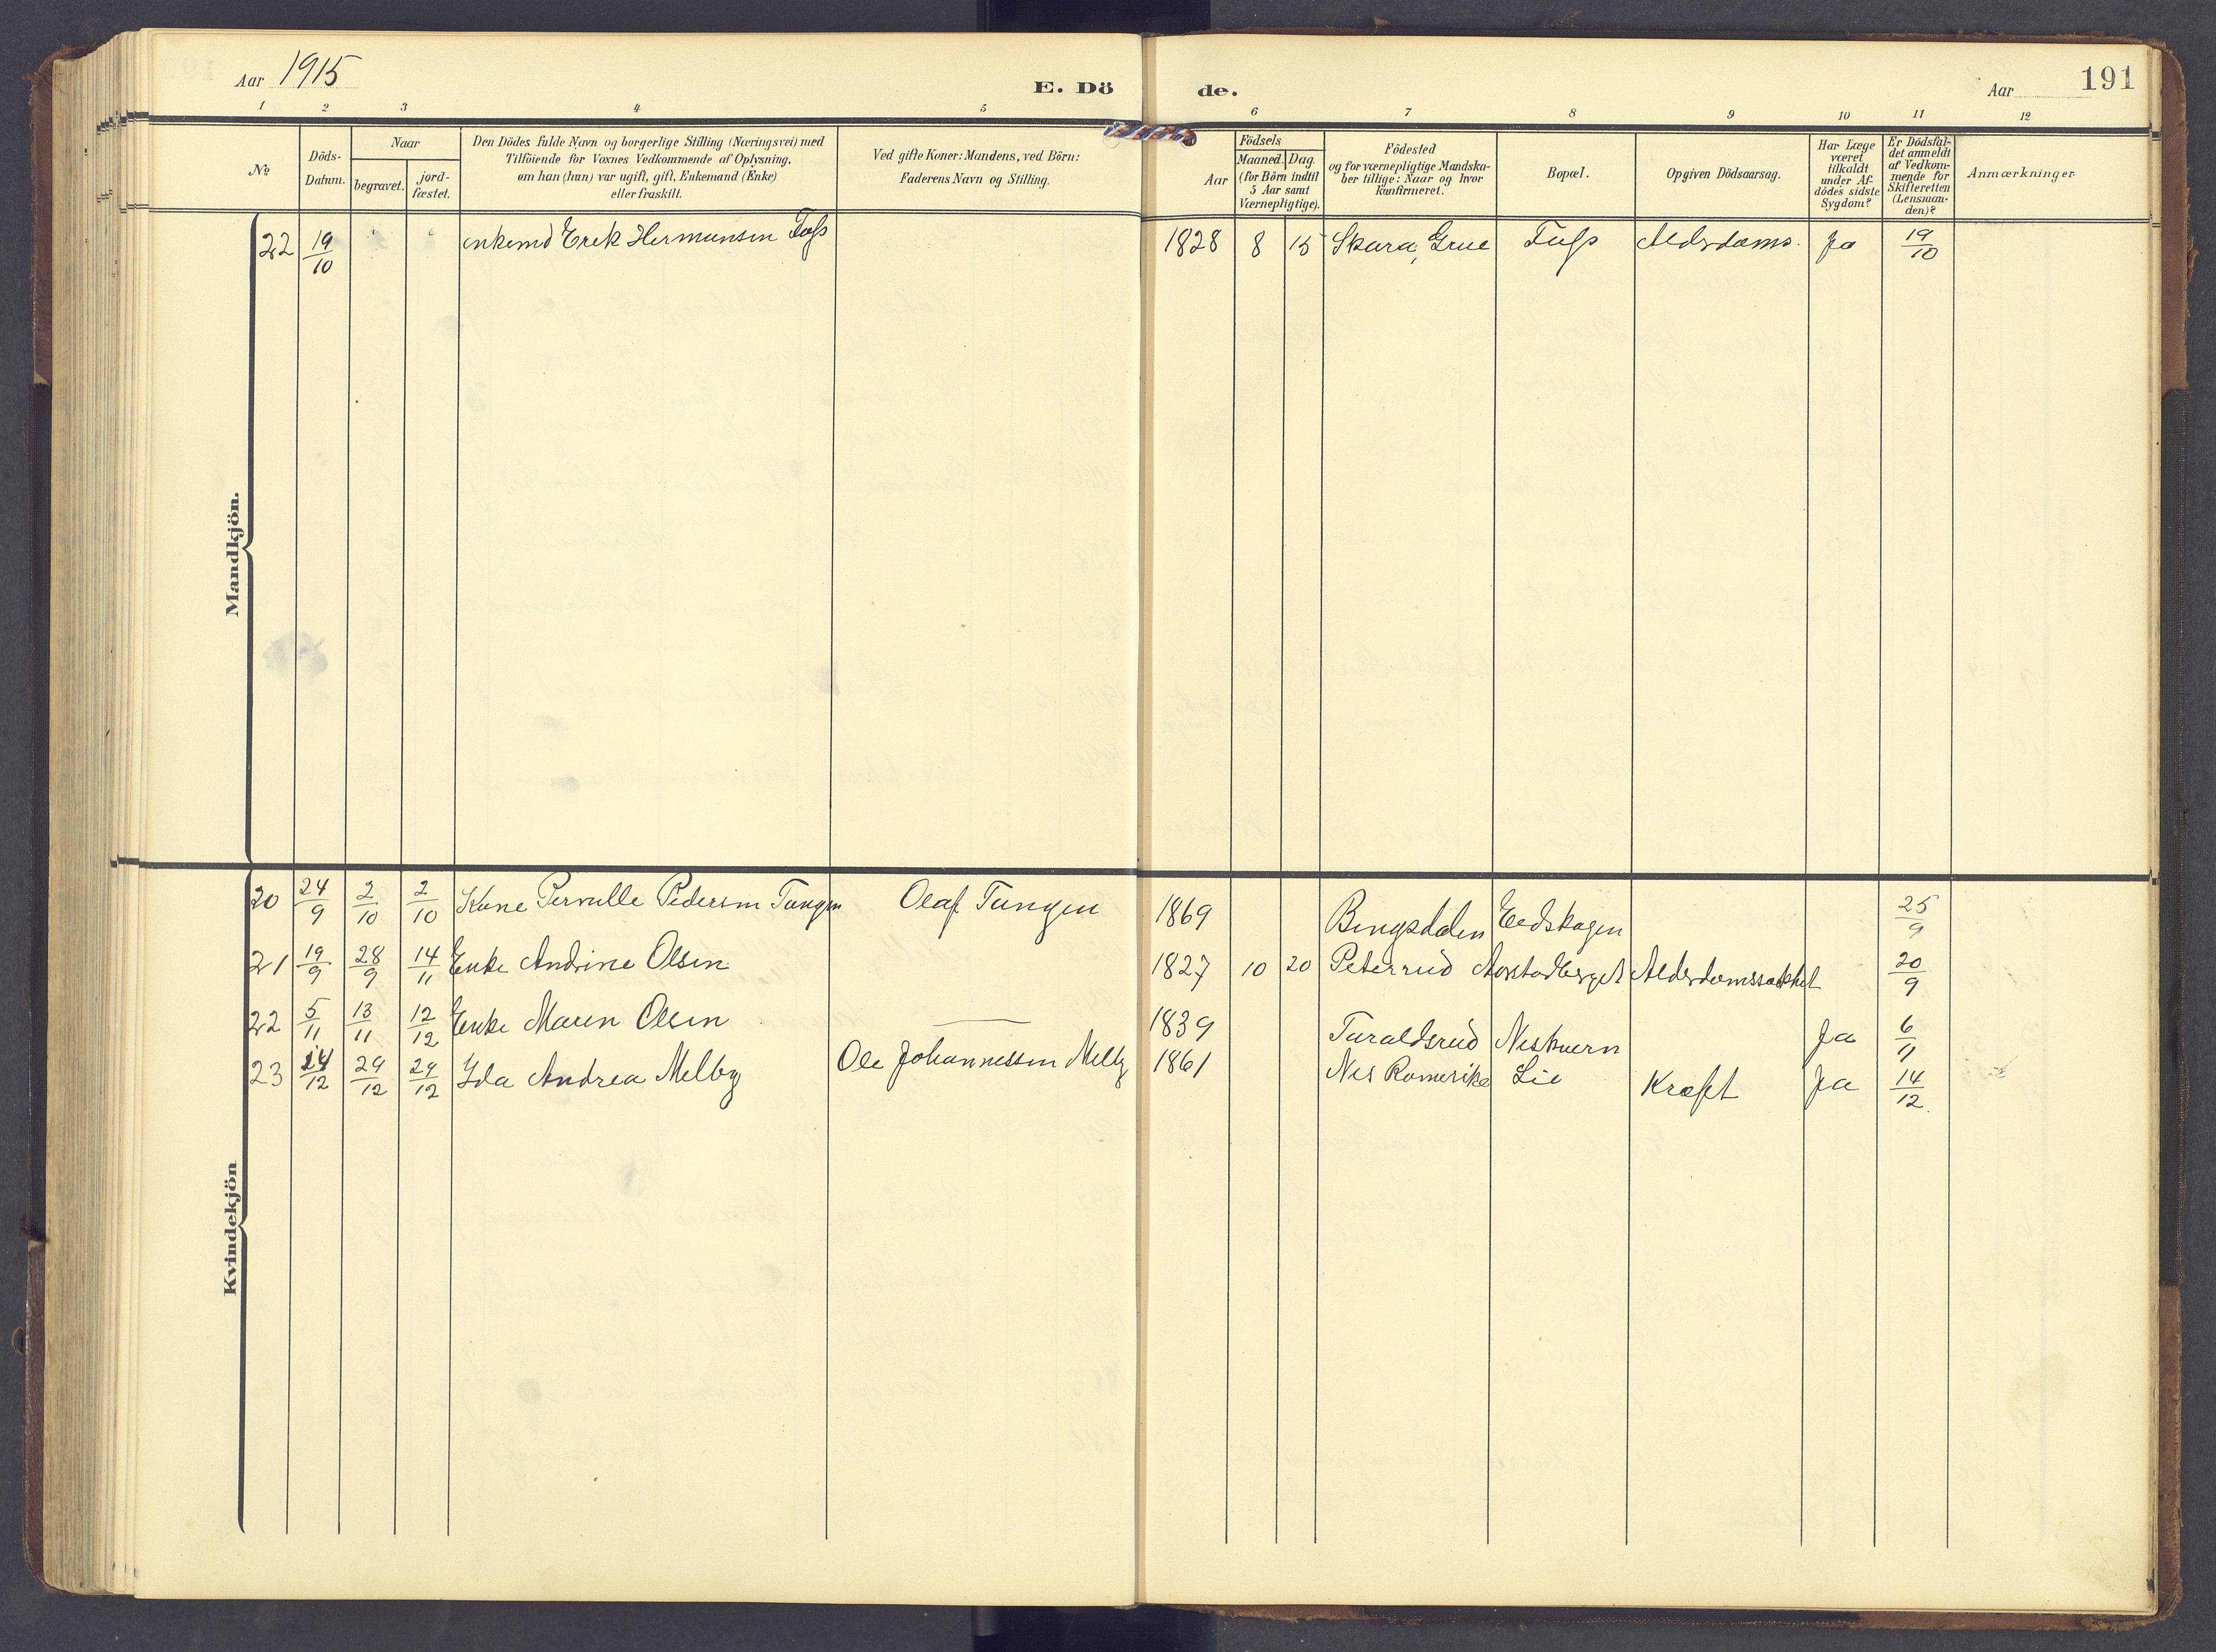 Aar 1915
E. Dö
de.
Aar
191
1 2 3 4 5 6 7 8 9 10 11 12
No.
Döds-
Datum.
Naar
begravet.
jord-
fæstet.
Den Dödes fulde Navn og borgerlige Stilling (Næringsvei) med
Tilföiende for Voxnes Vedkommende af Oplysning,
om han (hun) var ugift, gift, Enkemand (Enke)
eller fraskilt.
Ved gifte Koner: Mandens, ved Börn:
Faderens Navn og Stilling.
Födsels
Aar
Maaned. Dag.
(for Börn indtil
5 Aar samt
Værnepligtige).
Födested
og for værnepligtige Mandska-
ber tillige: Naar og hvor
konfirmeret.
Bopæl.
Opgiven Dödsaarsag.
Har Læge
været
tilkaldt
under Af-
dödes sidste
Sygdom?
Er Dödsfal-
det anmeldt
af Vedkom-
mende for
Skifteretten
(Lensman-
den)?
Anmærkninger
Mandkjön.
22 19/10 Enkemd Erek Hermansen 1828 8 15 Skara, Grue Alderdoms. Ja 19/10
Kvindekjön
20 24/9 2/10 2/10 Kone Pernille Pedersen Tangen Olaf Tangen 1869 Bingsdalen Eedskogen 25/9
21 19/9 28/9 14/11 Enke Andrine Olsen 1827 10 20 Peterrud Aarstadberget Alderdomssvakhet 20/9
22 5/11 13/11 12/12 Enke Maren Olsen — 1839 Taraldsrud Neskvern Ja 6/11
23 14/12 29/12 29/12 Ida Andrea Melby Ole Johannessen Melby 1861 Nes Romerike Lie Kræft Ja 14/12